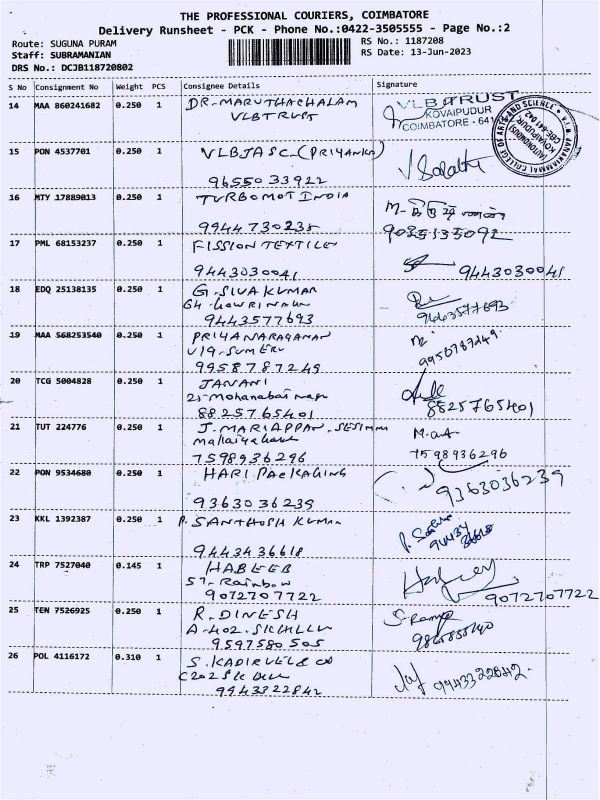 THE PROFESSIONAL COURIERS, COIMBATORE
Delivery Runsheet - PCK - Phone No.:0422-3505555 - Page No.:2
Route: SUGUNA PURAM
RS No.: 1187208
Staff: SUBRAMANIAN
RS Date: 13-Jun-2023
DRS No.: DCJB118720802
S No Consignment No Weight PCS Consignee Details Signature
14 MAA 860241682 0.250 1 DR-MARUTHACHALAM
VLB TRUST
VLB TRUST
KOVAIPUDUR
COIMBATORE - 641
15 PON 4537701 0.250 1 VLBJASC (PRIYANKA)
9655033922
16 MTY 17889013 0.250 1 TURBOMOT INDIA
9944730235
9035135092
17 PML 68153237 0.250 1 FISSION TEXTILE
9443030041
9443030041
18 EDQ 25138135 0.250 1 G.SIVAKUMAR
9443577693
19 MAA 568253540 0.250 1 PRIYANARAYANAN
V19-SUMERU
9958787249
20 TCG 5004828 0.250 1 JANANI
8825765401
8825765401
21 TUT 224776 0.250 1 J.MARIAPPAN
7598936296
7598936296
22 PON 9534680 0.250 1 HARI PACKAGING
9363036239
9363036239
23 KKL 1392387 0.250 1 P.SANTHOSH KUMAR
9443436618
24 TRP 7527040 0.145 1 HABEEB
57-Rainbow
9072707722
9072707722
25 TEN 7526925 0.250 1 R.DINESH
9597580505
26 POL 4116172 0.310 1 S.KADIRVEL & CO
9943322842
9943322842